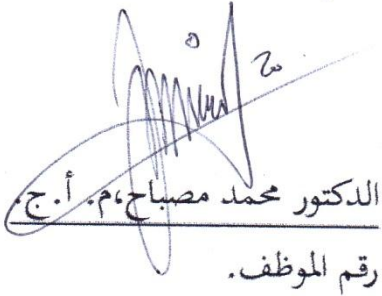 الدكتور محمد مصباح،م. أ.ج.
رقم الموظف.